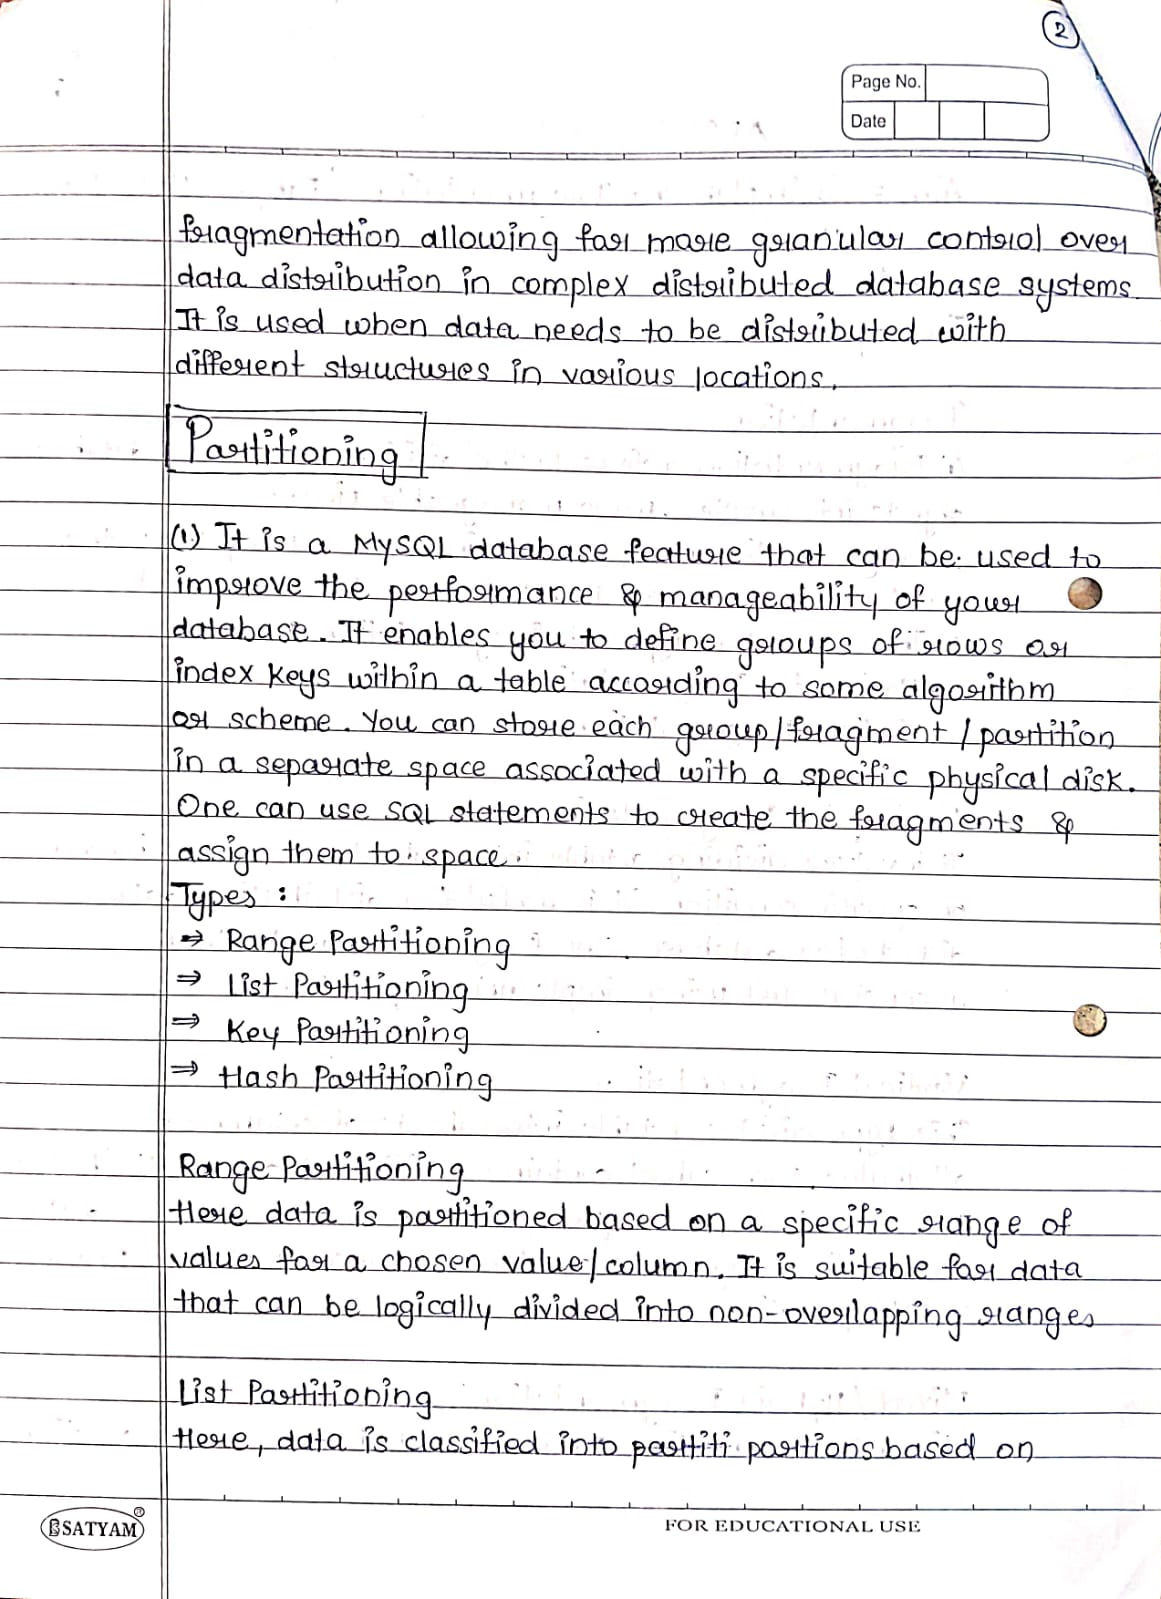 2
Page No.
Date
fragmentation allowing for more granular control over
data distribution in complex distributed database systems.
It is used when data needs to be distributed with
different structures in various locations.
Partitioning
(1) It is a MySQL database feature that can be used to
improve the performance & manageability of your
database. It enables you to define groups of rows or
index keys within a table according to some algorithm
or scheme. You can store each group/fragment/partition
in a separate space associated with a specific physical disk.
One can use SQL statements to create the fragments &
assign them to space.
Types :
⇒ Range Partitioning
⇒ List Partitioning
⇒ Key Partitioning
⇒ Hash Partitioning
Range Partitioning
Here data is partitioned based on a specific range of
values for a chosen value/column. It is suitable for data
that can be logically divided into non-overlapping ranges
List Partitioning
Here, data is classified into partiti partions based on
SATYAM
FOR EDUCATIONAL USE